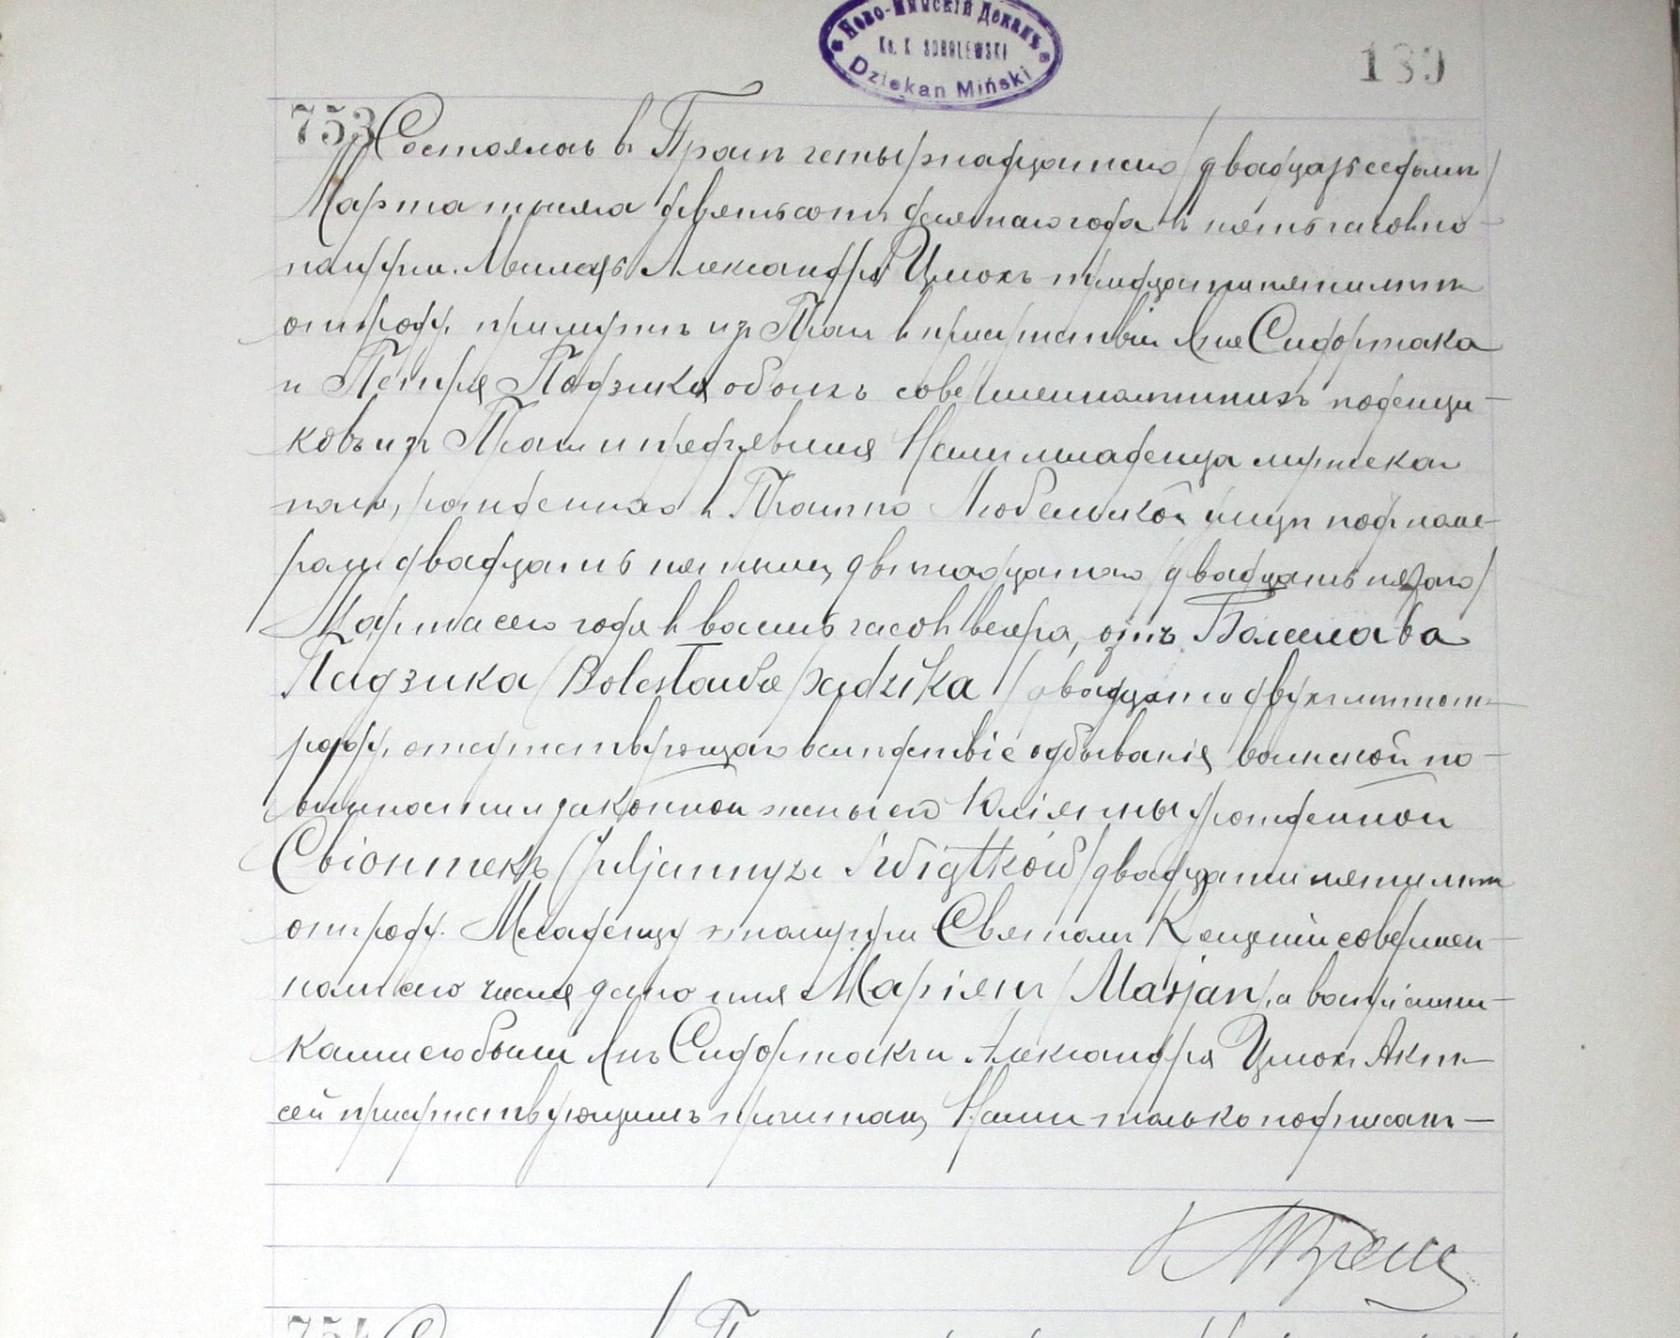 Ново-Минскій Деканъ
Ks. K. SOBOLEWSKI
Dziekan Miński
189
753
Состоялось в Праге четырнадцатаго /двадцать седьмаго/
Марта тысяча девятьсот десятаго года в пять часов по-
полудни. Явилась Александра Цмохъ тридцати пяти лет
от роду, из Праги в присутствіи Яна Сидорчака
и Петра Падзика обоихъ совершеннолетнихъ поденщи-
ковъ из Праги и предъявила Нам младенца мужескаго
пола, рожденнаго в Праге по улице под номе-
ром двадцать пятым, двенадцатаго /двадцать пятаго/
Марта сего года в восемь часов вечера, отъ Болеслава
Падзика /Bolesława Padzika/ двадцати двух лет от
роду, отсутствующаго вследствіе отбыванія воинской по-
винности и законной жены его Юліянны урожденной
Свіонтекъ /Juljanny z Świątków/ двадцати пяти лет
от роду. Младенцу этому при Святом Крещеніи совершен-
ном сего числа дано имя Маріян /Marjan/, а воспріемни-
ками его были Ян Сидорчак и Александра Цмох. Акт
сей присутствующим прочитан, Нами только подписан —
754